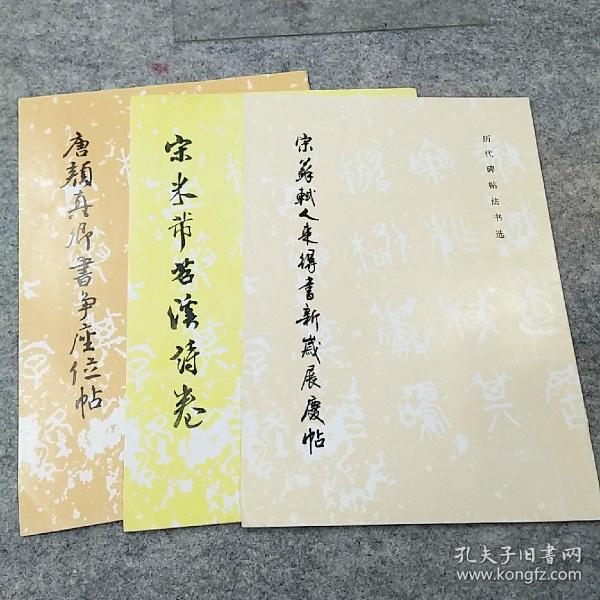 唐顏真卿書争座位帖
宋米芾苕溪诗卷
宋蘇軾人来得書新歲展慶帖
历代碑帖法书选
孔夫子旧书网
www.kongfz.com